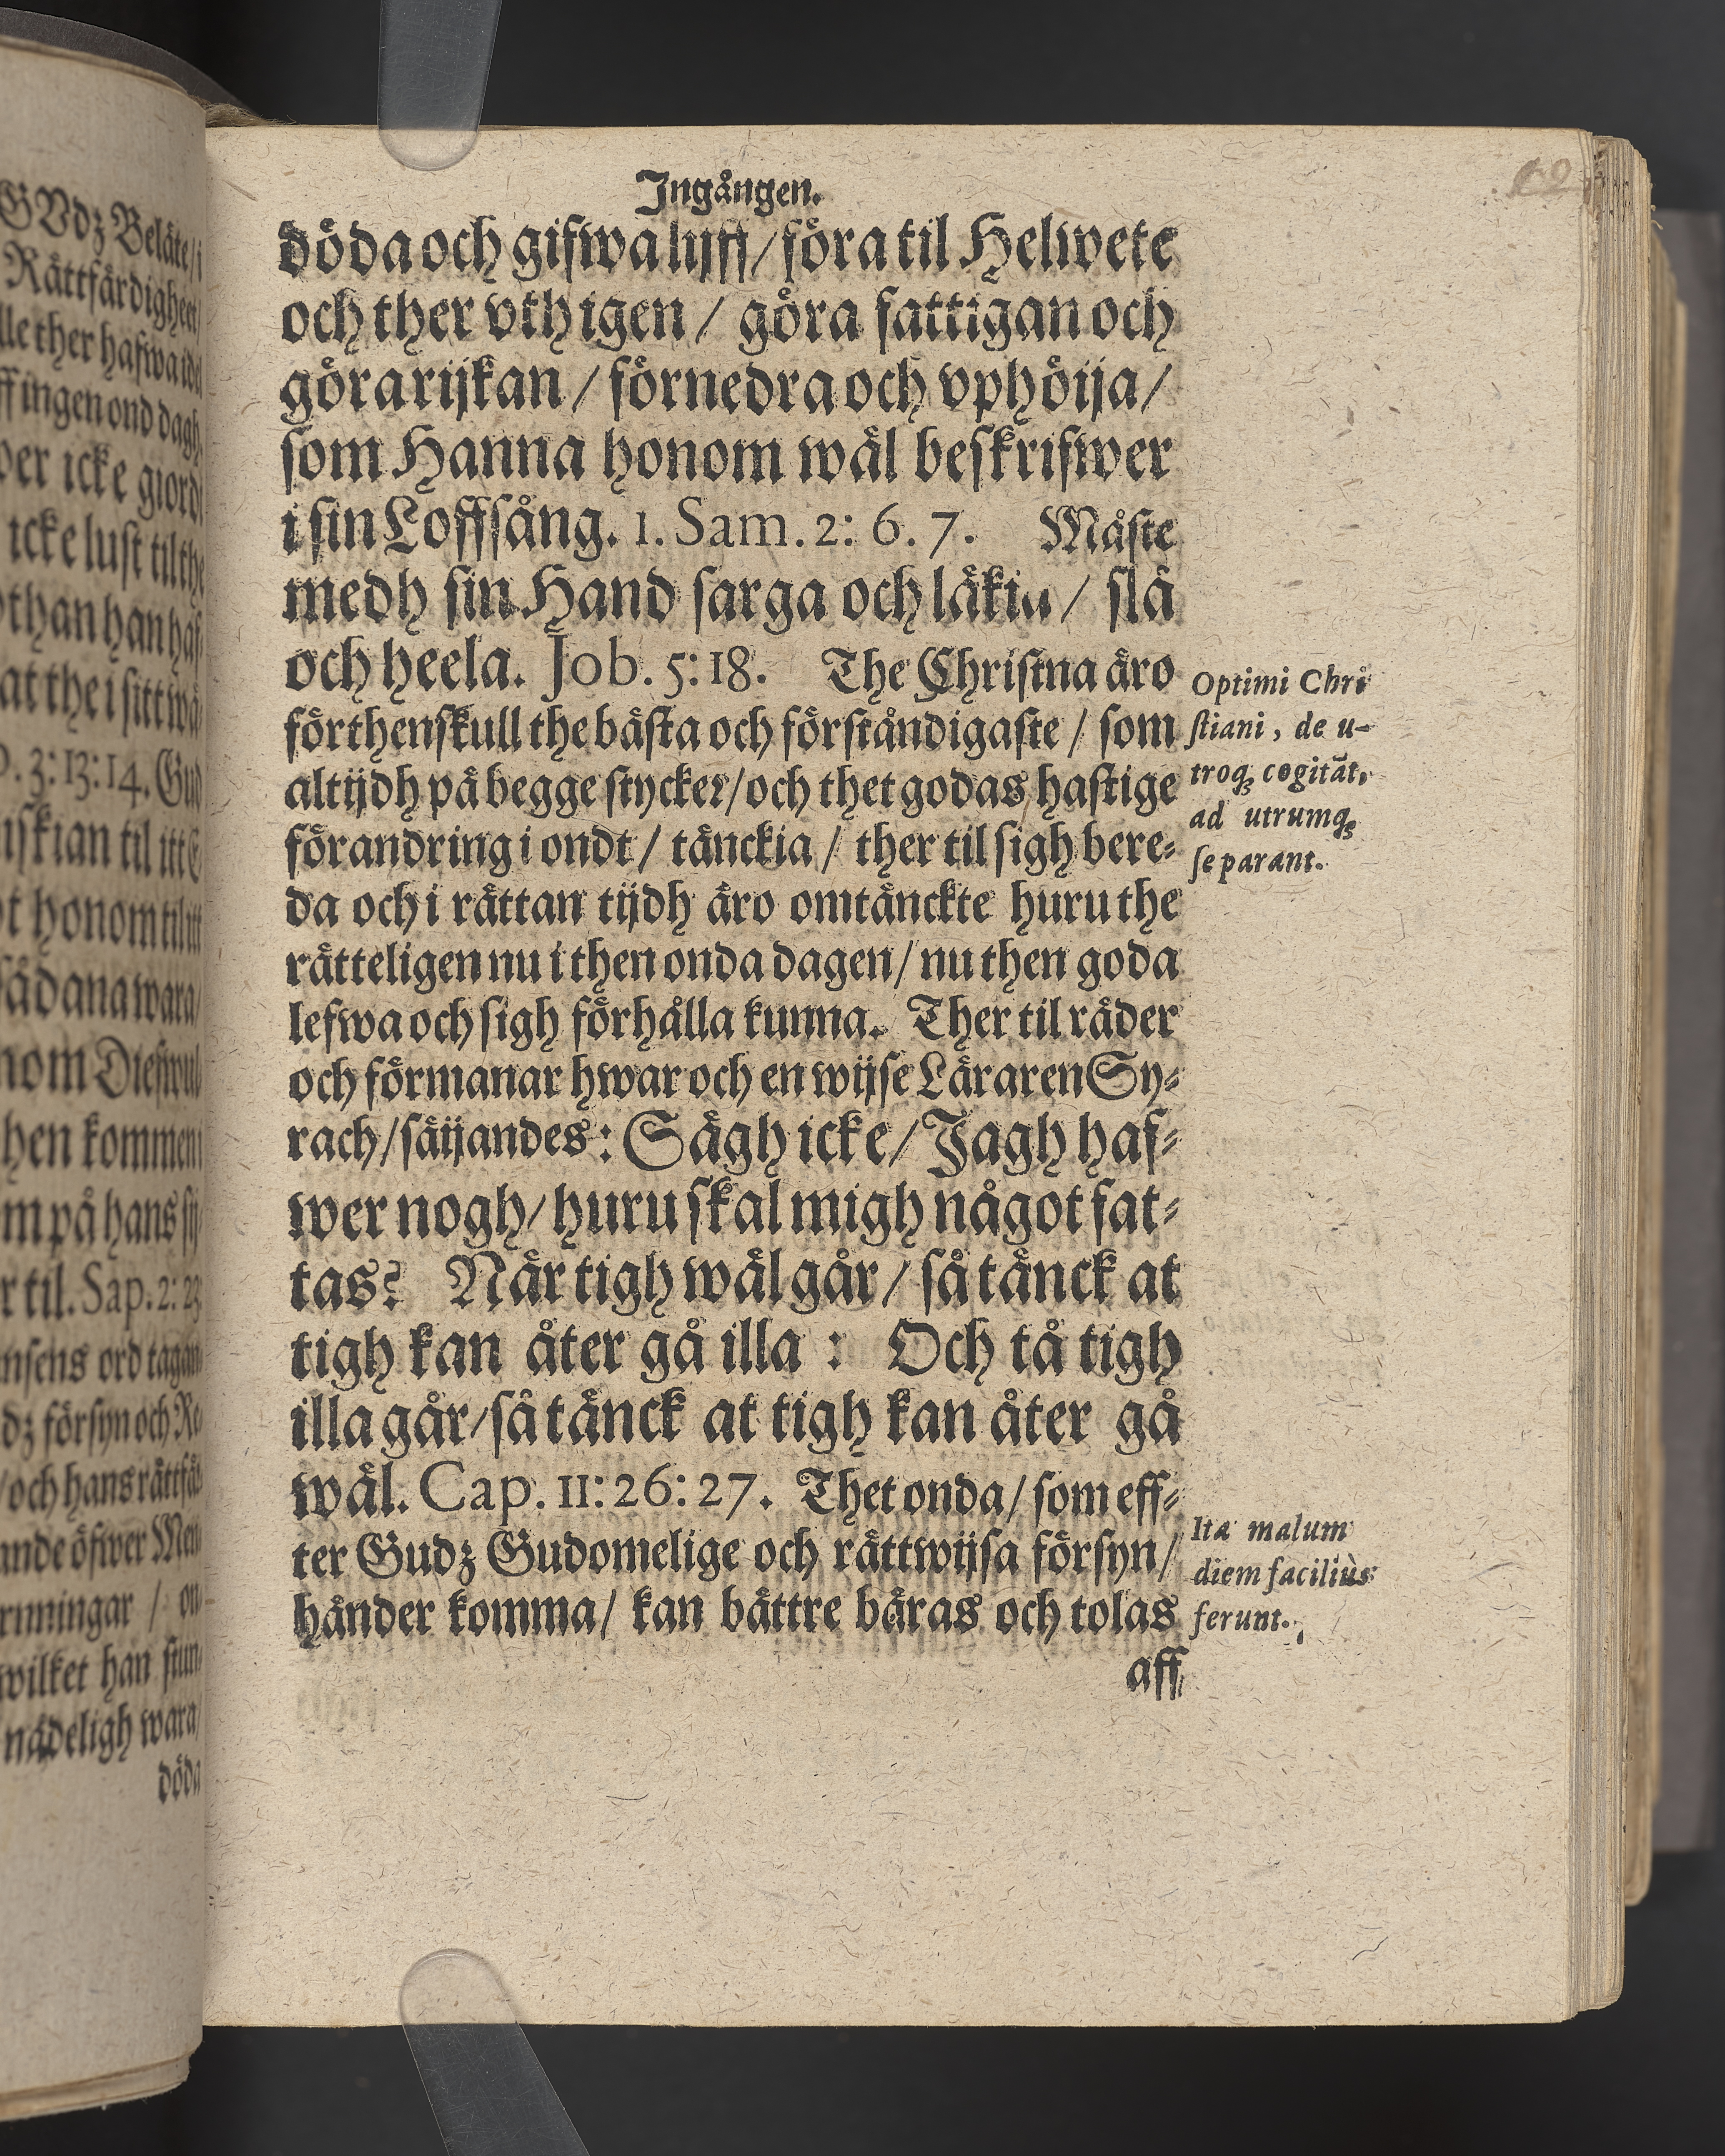 Ingången.
döda och gifwa lijff / föra til Helwete
och ther vth igen / göra fattigan och
göra rijkan / förnedra och vphöija /
som Hanna honom wäl beskrifwer
i sin Loffsång. 1. Sam. 2: 6. 7. Måste
medh sin Hand sarga och läkia / slå
och heela. Job. 5: 18. The Christna äro
förthenskull the bästa och förståndigaste / som
altijdh på begge stycker / och thet godas hastige
förandring i ondt / tänckia / ther til sigh bere-
da och i rättan tijdh äro omtänckte huru the
rätteligen nu i then onda dagen / nu then goda
lefwa och sigh förhålla kunna. Ther til råder
och förmanar hwar och en wijse Läraren Sy-
rach / säijandes: Sägh icke / Jagh haf-
wer nogh / huru skal migh något fat-
tas? När tigh wäl går / så tänck at
tigh kan åter gå illa : Och tå tigh
illa går / så tänck at tigh kan åter gå
wäl. Cap. 11: 26: 27. Thet onda / som eff-
ter Gudz Gudomelige och rättwijsa försyn /
händer komma / kan bättre bäras och tolas
aff
Optimi Chri
stiani, de u-
troq; cogitāt,
ad utrumq;
se parant.
Ita malum
diem faciliùs
ferunt.
GVdz Beläte / i
Rättfärdigheet /
ther hafwa
ingen ond dagh
icke giord
icke lust til the
than han haf-
at the i sitt
3: 13: 14. Gud
til itt
honom til itt
sådana wara
Diefwul
then kommen
på hans
til. Sap. 2:
ord
försyn och
och hans
öfwer
/ on-
han
nådeligh wara /
döda